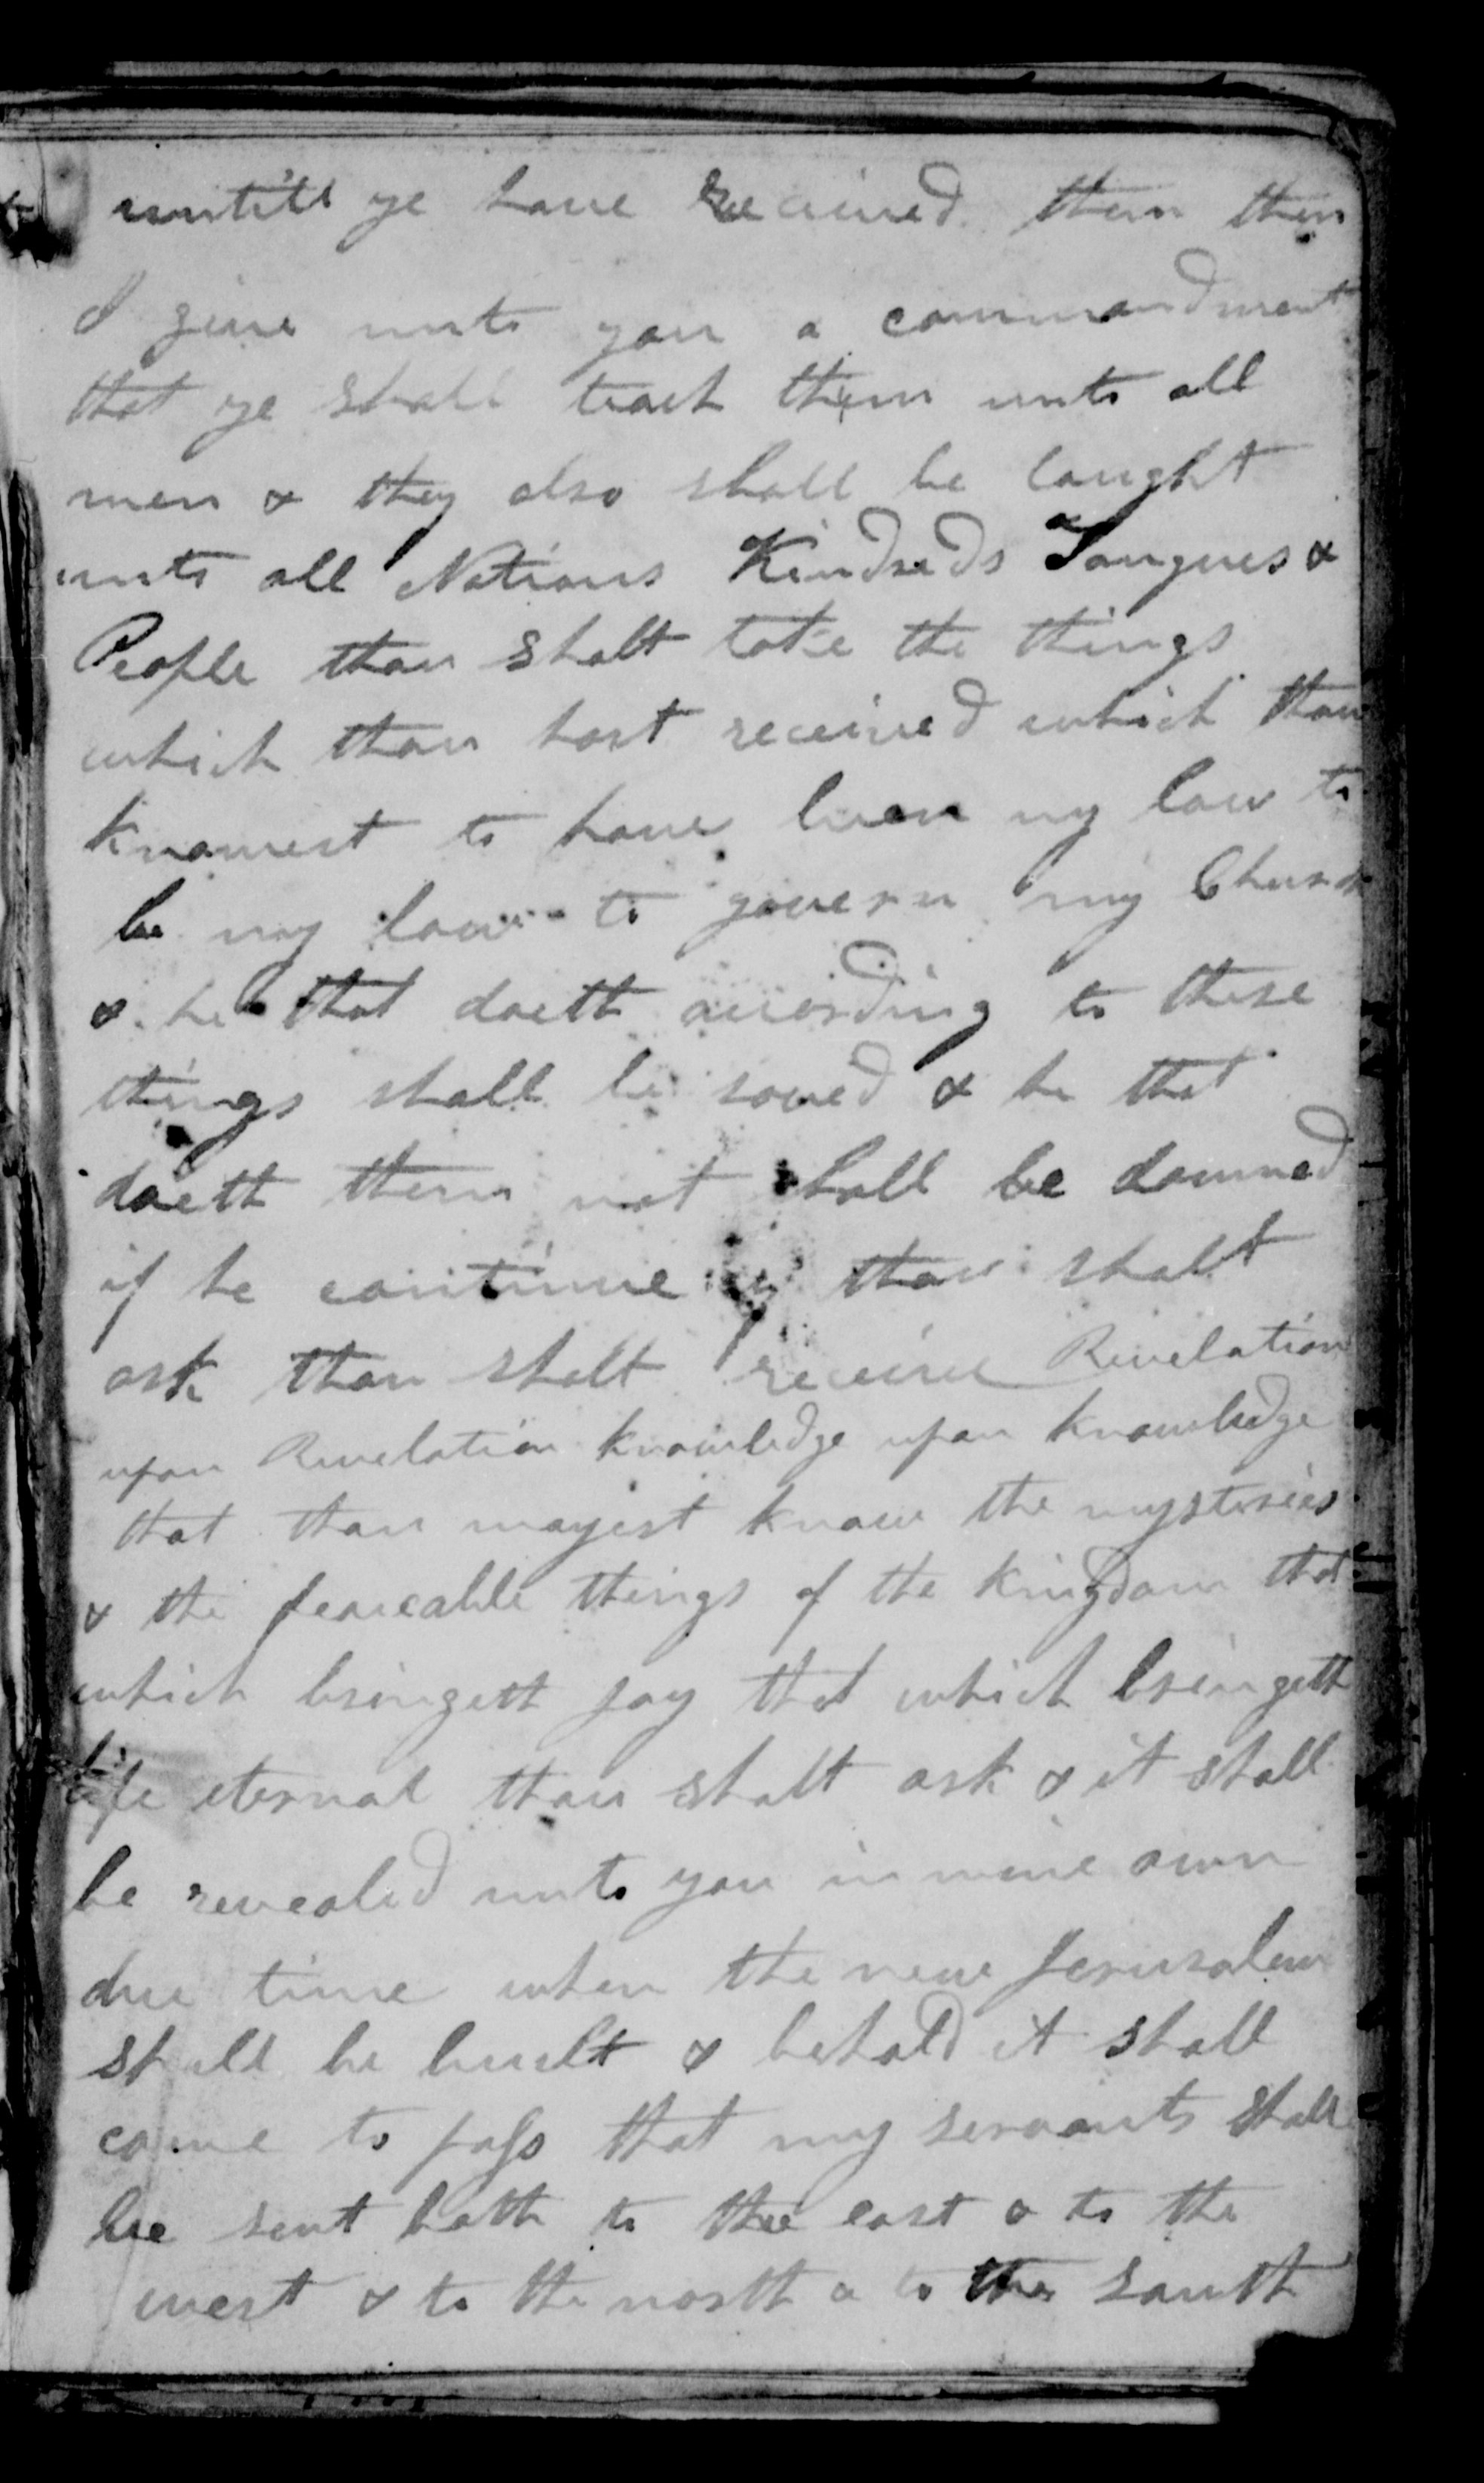 untill ye have received them then
I give unto you a commandment
that ye shall teach them unto all
men & they also shall be taught
unto all Nations Kindreds Tongues &
People thou shalt take the things
which thou hast received which thou
knowest to have been my law to
be my law to govern my Church
& he that doeth according to these
things shall be saved & he that
doeth them not shall be damned
if he continue thou shalt
ask thou shalt receive Revelation
upon Revelation knowledge upon knowledge
that thou mayest know the mysteries
& the peaceable things of the kingdom that
which bringeth joy that which bringeth
life eternal thou shalt ask & it shall
be revealed unto you in mine own
due time when the new Jerusalem
shall be built & behold it shall
come to pass that my servants shall
be sent both to the east & to the
west & to the north & to the south